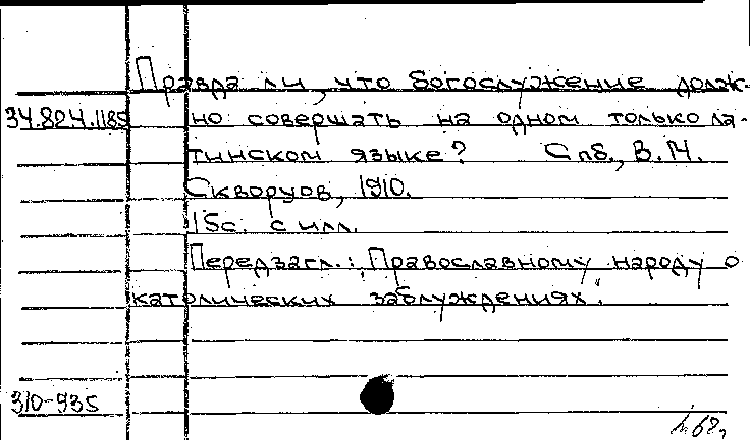 Правда ли, что богослужение долж-
34.824.1185 но совершать на одном только ла-
тинском языке? Спб., В. М.
Скворцов, 1910.
15с. с илл.
Перед загл.: "Православному народу о
католических заблуждениях".
310-935